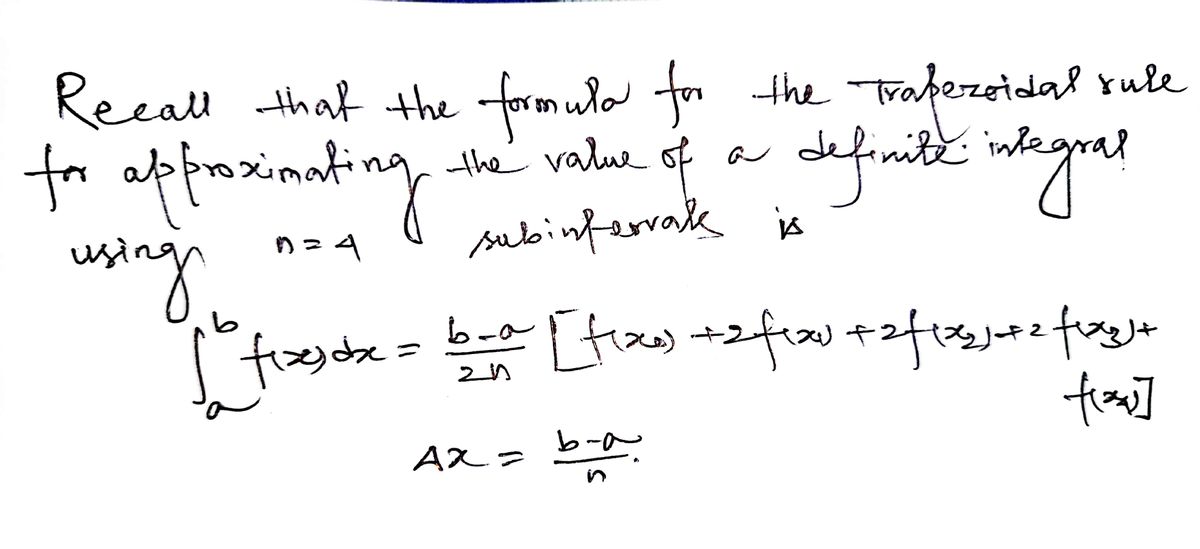 Recall that the formula for the Trapezoidal rule
for approximating the value of a definite integral
using n = 4 subintervals is
∫_a^b f(x) dx = (b-a)/(2n) [f(x₀) + 2f(x₁) + 2f(x₂) + 2f(x₃) +
f(x₄)]
Δx = (b-a)/n.